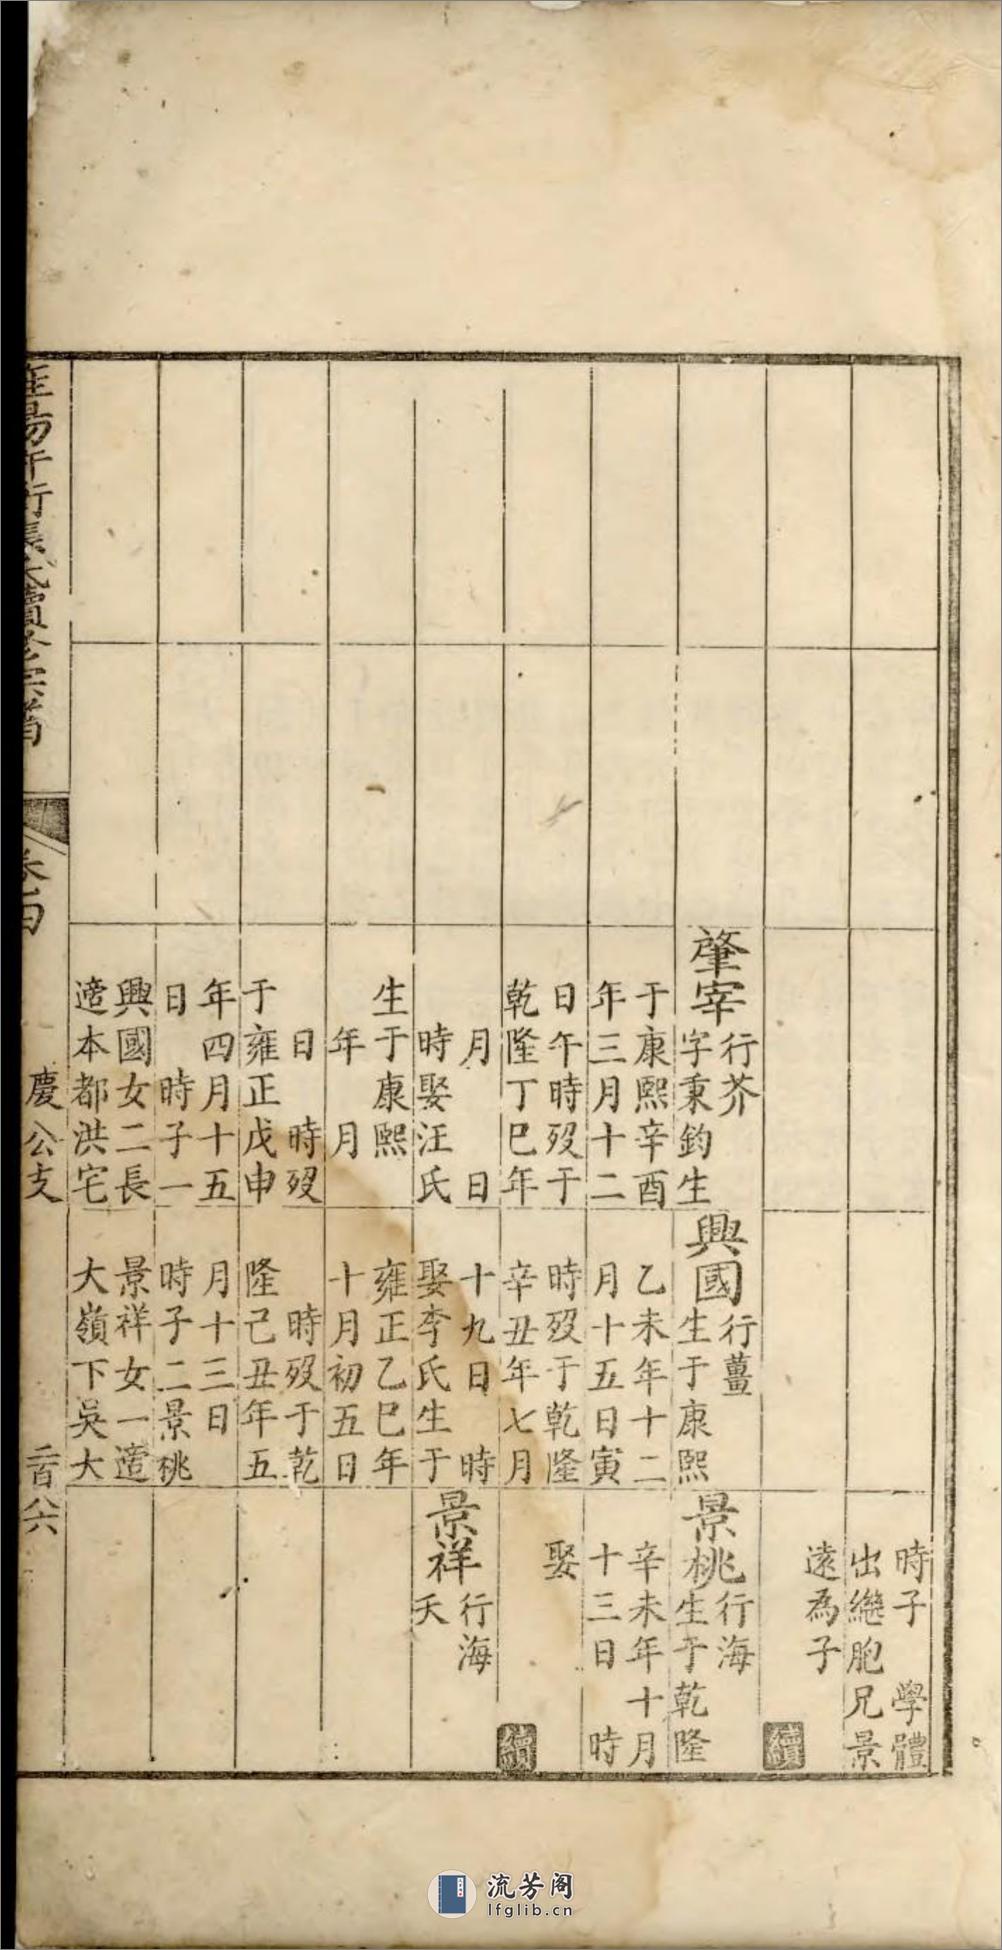 肇宰
行芥
字秉鈞生
于康熙辛酉
年三月十二
日午時歿于
乾隆丁巳年
月　日
時娶汪氏
生于康熙
年　月
日　時歿
于雍正戊申
年四月十五
日　時子一
興國女二長
適本都洪宅
興國
行薑
生于康熙
乙未年十二
月十五日寅
時歿于乾隆
辛丑年七月
十九日　時
娶李氏生于
雍正乙巳年
十月初五日
時歿于乾
隆己丑年五
月十三日
時子二景桃
景祥女一適
大嶺下吳大
時子　學體
出繼胞兄景
遠為子
續
景桃
行海
生于乾隆
辛未年十月
十三日　時
娶
續
景祥
行海
天
慶公支
二百八六
流芳阁
lfglib.cn